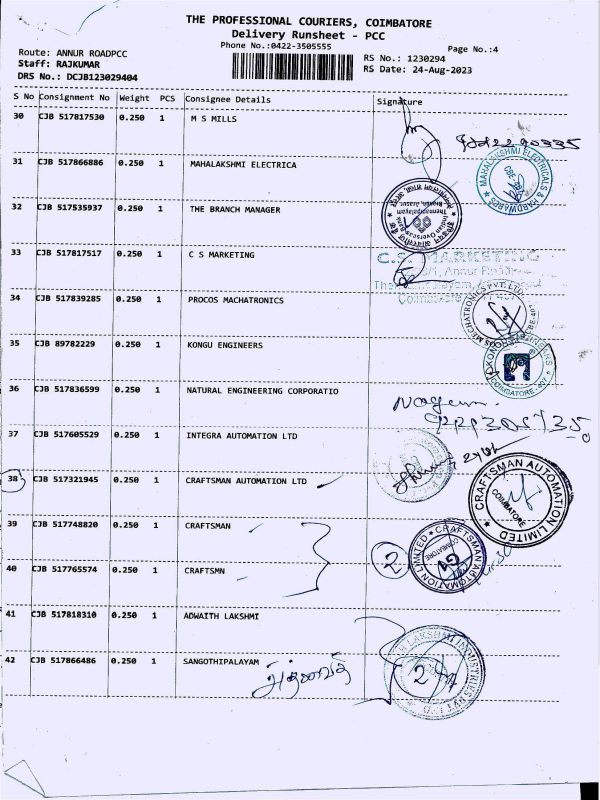 THE PROFESSIONAL COURIERS, COIMBATORE
Delivery Runsheet - PCC
Phone No.:0422-3505555
Page No.:4
Route: ANNUR ROADPCC
RS No.: 1230294
Staff: RAJKUMAR
RS Date: 24-Aug-2023
DRS No.: DCJB123029404
S No Consignment No Weight PCS Consignee Details Signature
30 CJB 517817530 0.250 1 M S MILLS
31 CJB 517866886 0.250 1 MAHALAKSHMI ELECTRICA
MAHALAKSHMI ELECTRICALS & HARDWARES
32 CJB 517535937 0.250 1 THE BRANCH MANAGER
Indian Overseas Bank
33 CJB 517817517 0.250 1 C S MARKETING
C.S. MARKETING
Annur Road
34 CJB 517839285 0.250 1 PROCOS MACHATRONICS
MECHATRONICS PVT. LTD.
35 CJB 89782229 0.250 1 KONGU ENGINEERS
COIMBATORE
36 CJB 517836599 0.250 1 NATURAL ENGINEERING CORPORATIO
37 CJB 517605529 0.250 1 INTEGRA AUTOMATION LTD
38 CJB 517321945 0.250 1 CRAFTSMAN AUTOMATION LTD
CRAFTSMAN AUTOMATION LIMITED
COIMBATORE
39 CJB 517748820 0.250 1 CRAFTSMAN
2
CRAFTSMAN AUTOMATION LIMITED
COIMBATORE
40 CJB 517765574 0.250 1 CRAFTSMN
41 CJB 517818310 0.250 1 ADWAITH LAKSHMI
LAKSHMI INDUSTRIES PVT LTD
42 CJB 517866486 0.250 1 SANGOTHIPALAYAM